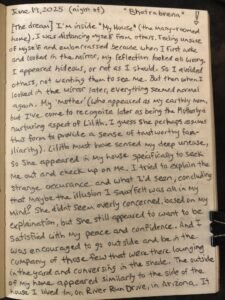 June 19, 2025 (night of) "Bhatrabrena"
[The dream] I'm inside *My House* (the many-roomed
home), I was distancing myself from others. Feeling unsure
of myself and embarrassed because when I first woke
and looked in the mirror, my reflection looked all wrong.
I appeared hideous, or not as I should. So I avoided
others, not wanting them to see me. But then when I
looked in the mirror later, everything seemed normal
again. My 'mother' (who appeared as my earthly mom,
but I've come to recognize later as being the Motherly
nurturing aspect of Lilith. I guess She perhaps assumes
this form to provide a sense of trustworthy fam-
iliarity). Lilith must have sensed my deep unease,
so She appeared in my house specifically to seek
me out and check up on me. I tried to explain the
strange occurance, and what I'd seen, concluding
that maybe the illusion I saw/felt was all in my
mind? She didn't seem overly concerned, based on my
explaination, but She still appeared to want to be
satisfied with my peace and confidence. And I
was encouraged to go outside and be in the
company of those few that were there lounging
in the yard and conversing in the shade. The outside
of my home appeared similarly to the side of the
house I lived in, on River Run Drive, in Arizona. It